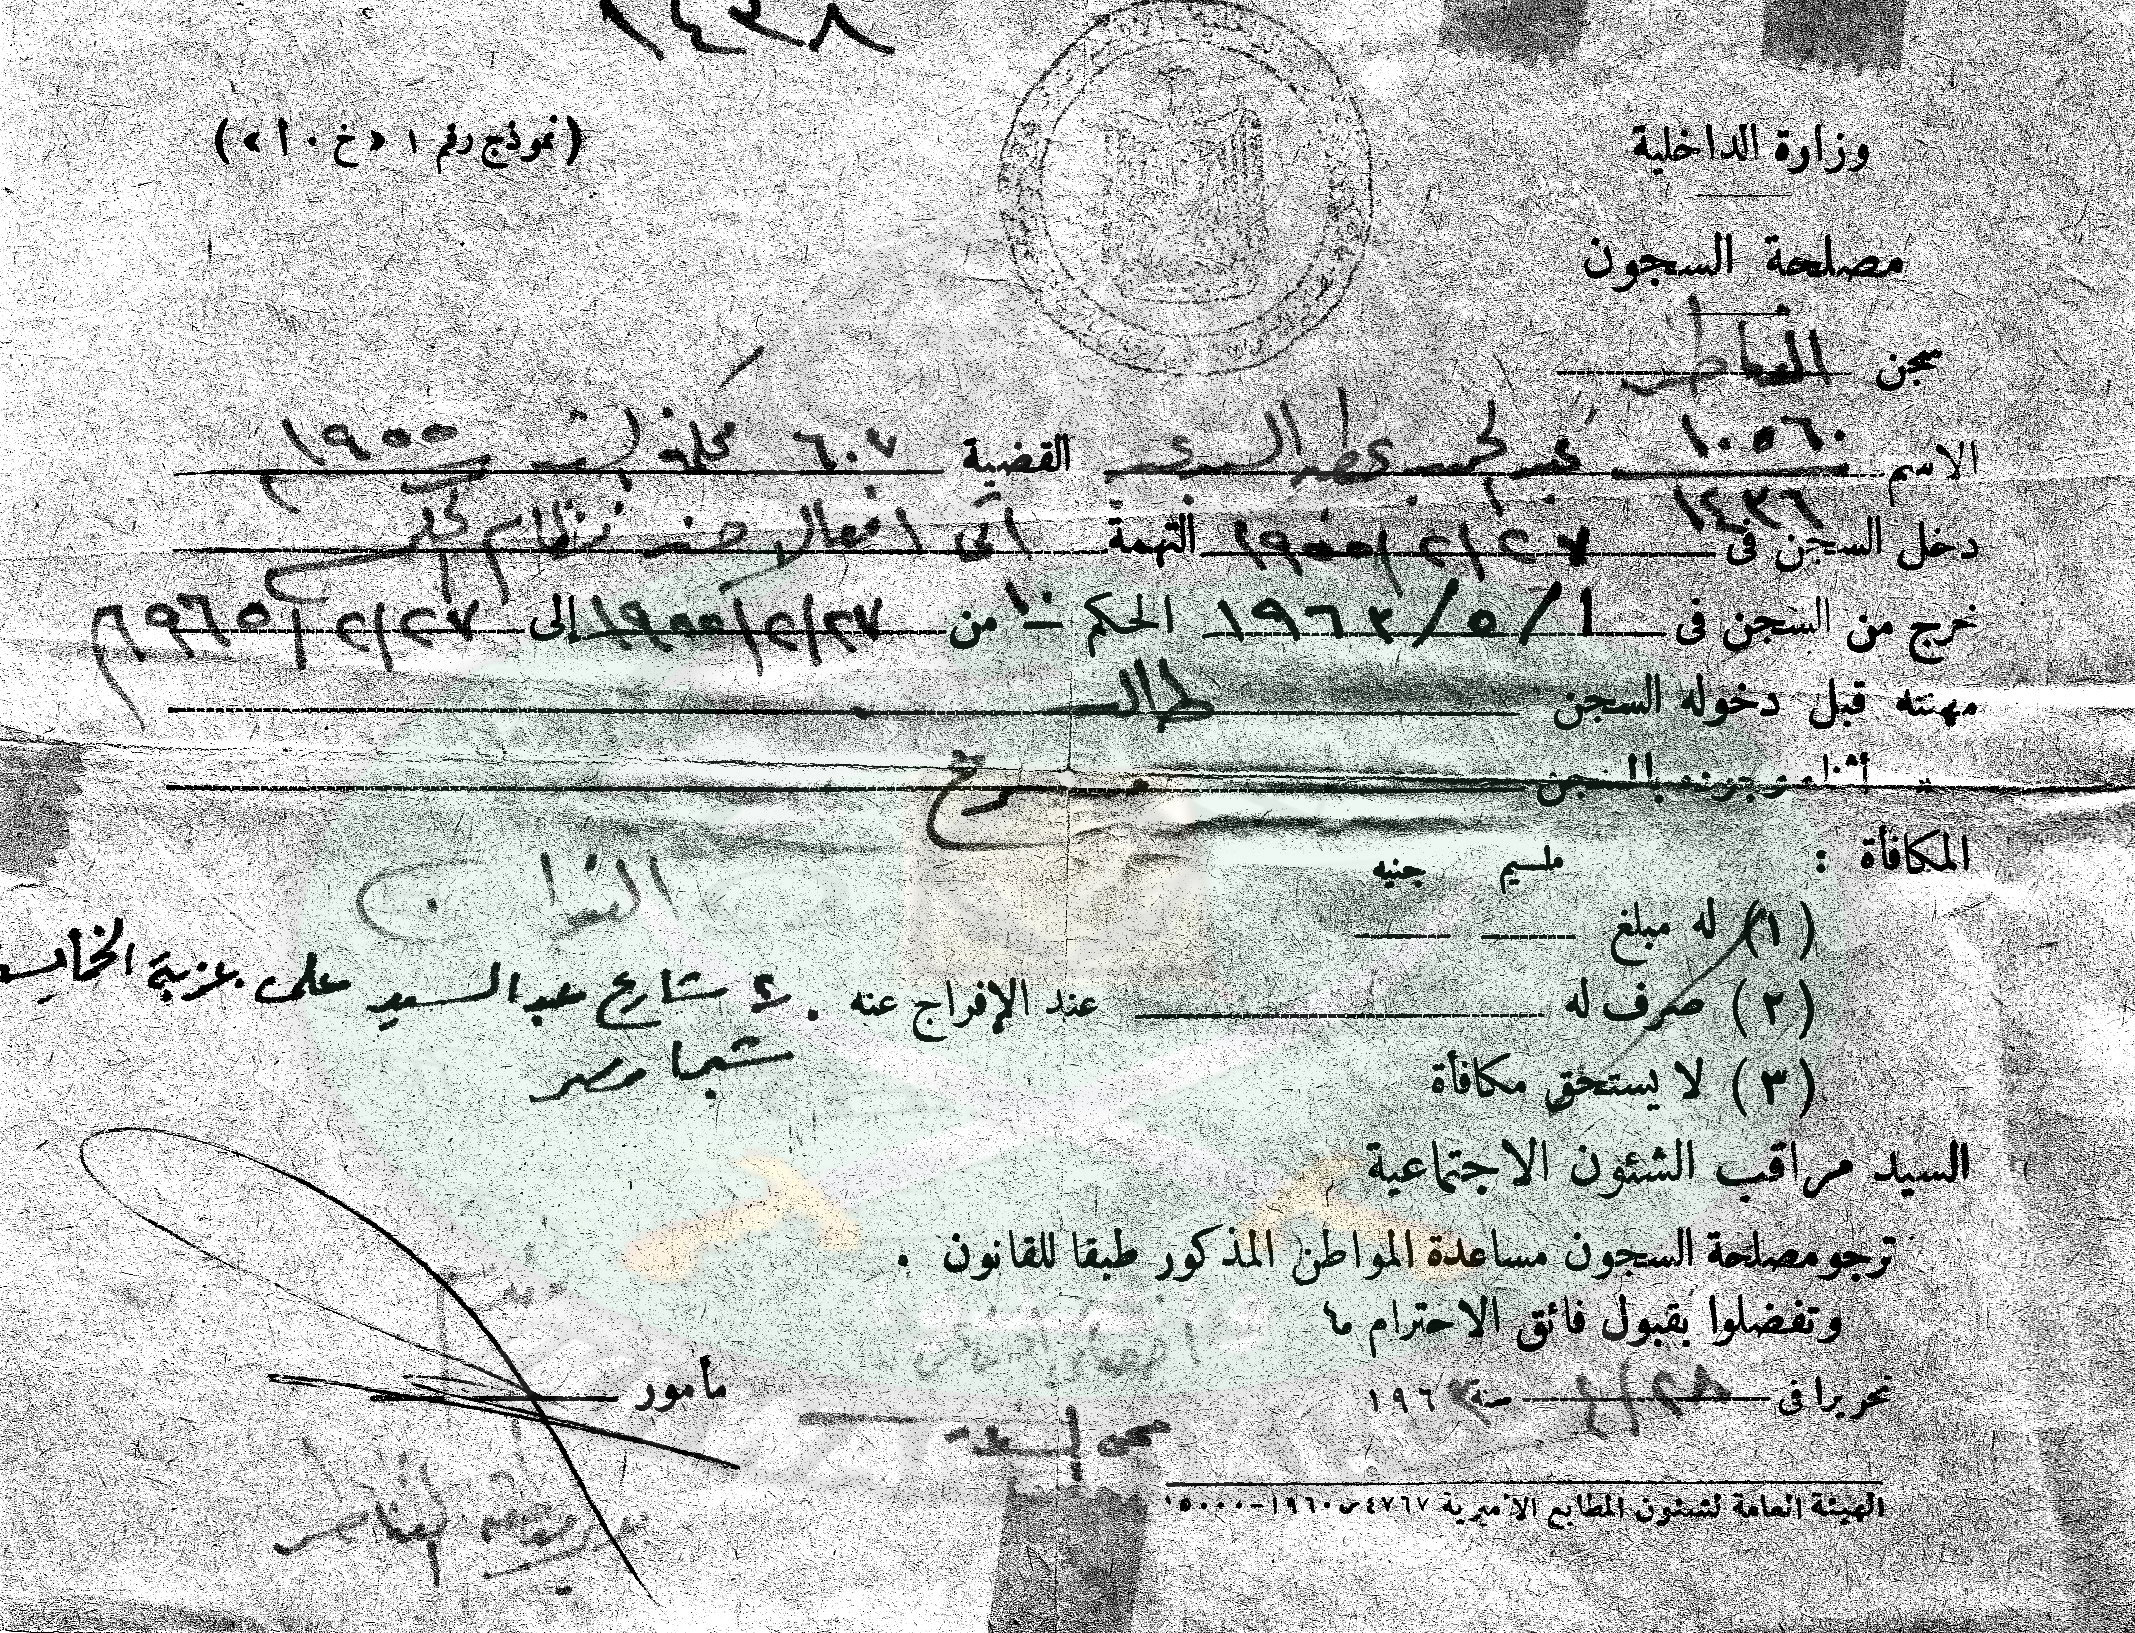 ١٤٣٨
(نموذج رقم ١ « خ ٠ أ »)
وزارة الداخلية
مصلحة السجون
سجن القناطر
الاسم ١٠٥٦٠ القضية ٦٠٧ ١٩٥٥
١٤٣٦
دخل السجن فى ٢٧/٢/١٩٥٥ التهمة أتى أفعال ضد نظام الحكم
خرج من السجن فى ١/٥/١٩٦٣ الحكم ١٠ من ٢٧/٢/١٩٥٥ إلى ٢٧/٢/١٩٦٥
مهنته قبل دخوله السجن طالب
« أثناء وجوده بالسجن
المكافأة :
مليم جنيه
(١) له مبلغ
(٢) صرف له عند الإفراج عنه . ٤ شارع عبد السيد على عزبة
شبرا مصر
(٣) لا يستحق مكافأة
السيد مراقب الشئون الاجتماعية
ترجو مصلحة السجون مساعدة المواطن المذكور طبقا للقانون .
وتفضلوا بقبول فائق الاحترام ما
تحريرا فى ٢٨/٤ سنة ١٩٦٣
مأمور
الهيئة العامة لشئون المطابع الأميرية ٤٧٦٧ س ١٩٦٠-١٥٠٠٠